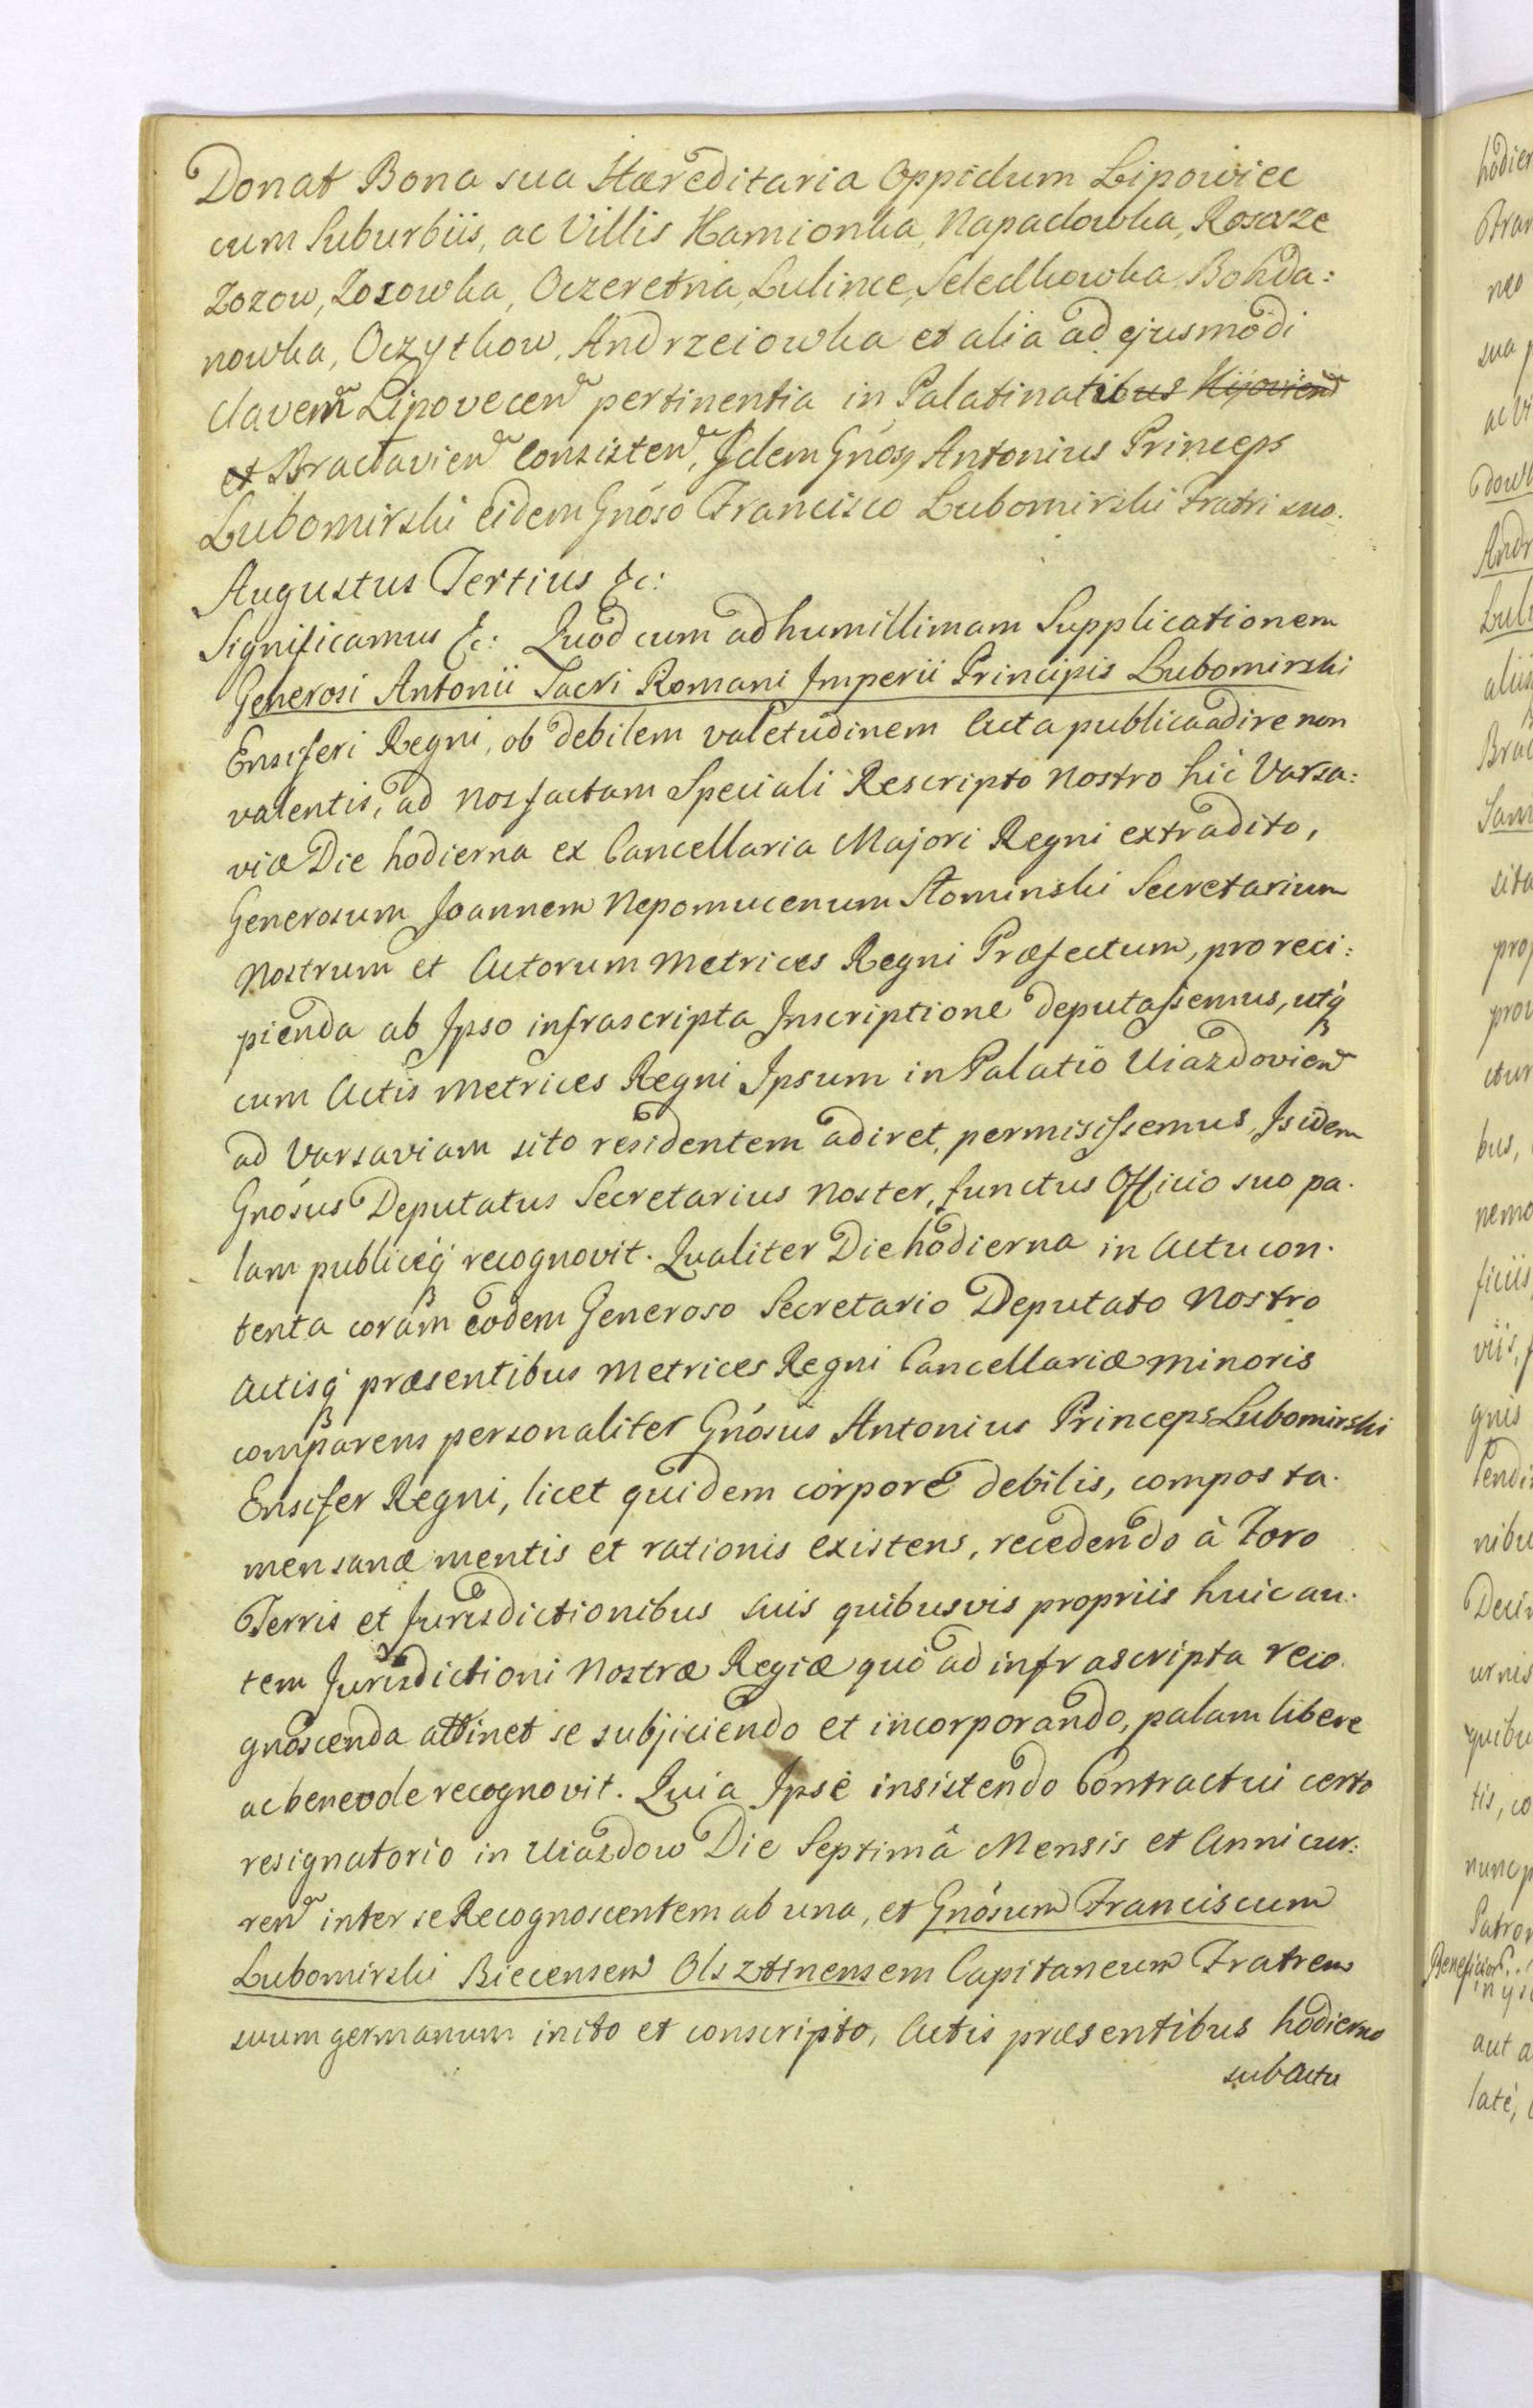 Donat Bona sua Hæreditaria Oppidum Lipowiec
cum Suburbiis, ac Villis Kamionka, Napadowka, Rososze
Zozow, Zozowka, Oczeretna, Lulince, Seledkowka Bohda:
nowka, Oczytkow, Andrzeiowka et alia ad ejusmodi
Clavem Lipovecen pertinentia in Palatinatibus Kijovien
et Bractavien Consisten, Idem Gnosq Antonius Princeps
Lubomirski eidem Gnoso Francisco Lubomirski Fratri suo.
Augustus Tertius &c:
Significamus &c: Quod cum ad humillimam Supplicationem
Generosi Antonii Sacri Romani Imperii Principis Lubomirski
Ensiferi Regni, ob debilem valetudinem Acta publica adire non
valentis, ad nos factam Speciali Rescripto Nostro hic Varsa:
viæ Die hodierna ex Cancellaria Majori Regni extradito,
Generosum Joannem Nepomucenum Słominski Secretarium
Nostrum et Actorum Metrices Regni Præfectum, pro reci:
pienda ab Ipso infrascripta Inscriptione deputassemus, utq
cum Actis Metrices Regni Ipsum in Palatio Uiazdovien
ad Varsaviam sito residentem adiret, permisissemus, Is idem
Gnosus Deputatus Secretarius Noster, functus Officio suo pa.
lam publiceq recognovit. Qualiter Die hodierna in Actu con.
tenta coram eodem Generoso Secretario Deputato Nostro
Actisq præsentibus Metrices Regni Cancellariæ Minoris
comparens personaliter Gnosus Antonius Princeps Lubomirski
Ensifer Regni, licet quidem corpore debilis, compos ta.
men sanæ mentis et rationis existens, recedendo à Foro
Terris et Jurisdictionibus suis quibusvis propriis huic au.
tem Jurisdictioni Nostræ Regiæ quo ad infrascripta reco
gnoscenda attinet se subjiciendo et incorporando, palam libere
ac benevole recognovit. Quia Ipse insistendo Contractui certo
resignatorio in Uiazdow Die Septimâ Mensis et Anni cur:
ren inter se Recognoscentem ab una, et Gnosum Franciscum
Lubomirski Biecensem Olsztinensem Capitaneum Fratrem
suum germanum inito et conscripto, Actis præsentibus hodierno
sub Actu